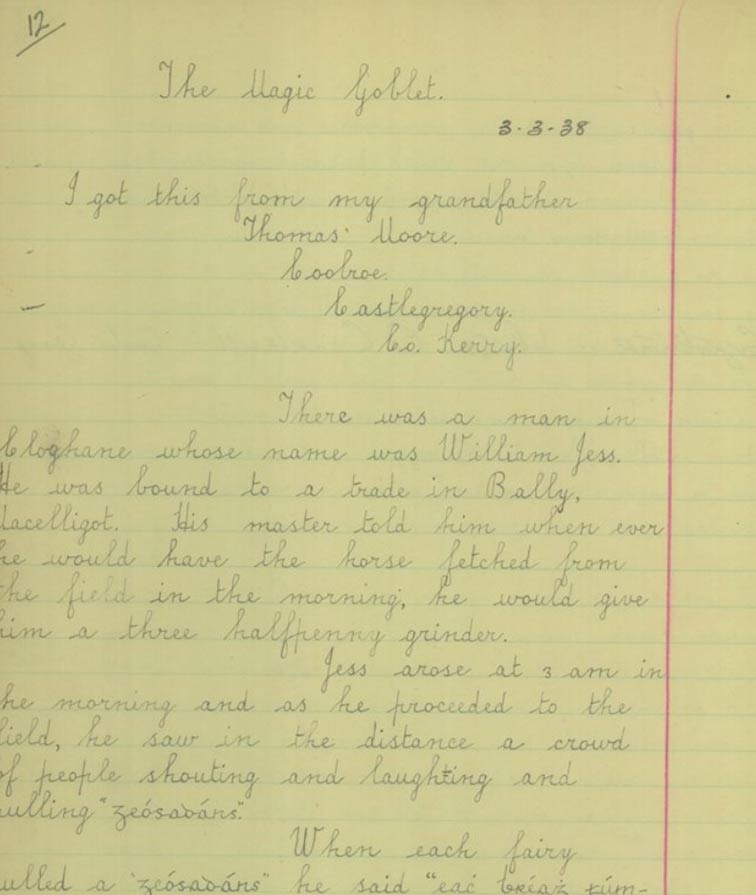 12
The Magic Goblet.
3-3-38
I got this from my grandfather
Thomas Moore.
Coolroe.
Castlegregory.
Co. Kerry.
There was a man in
Cloghane whose name was William Jess.
He was bound to a trade in Bally,
Macelligot. His master told him when ever
he would have the horse fetched from
the field in the morning, he would give
him a three halfpenny grinder.
Jess arose at 3 am in
he morning and as he proceeded to the
field, he saw in the distance a crowd
of people shouting and laughting and
ulling "geósadáns".
When each fairy
ulled a "geósadáns" he said "eaċ